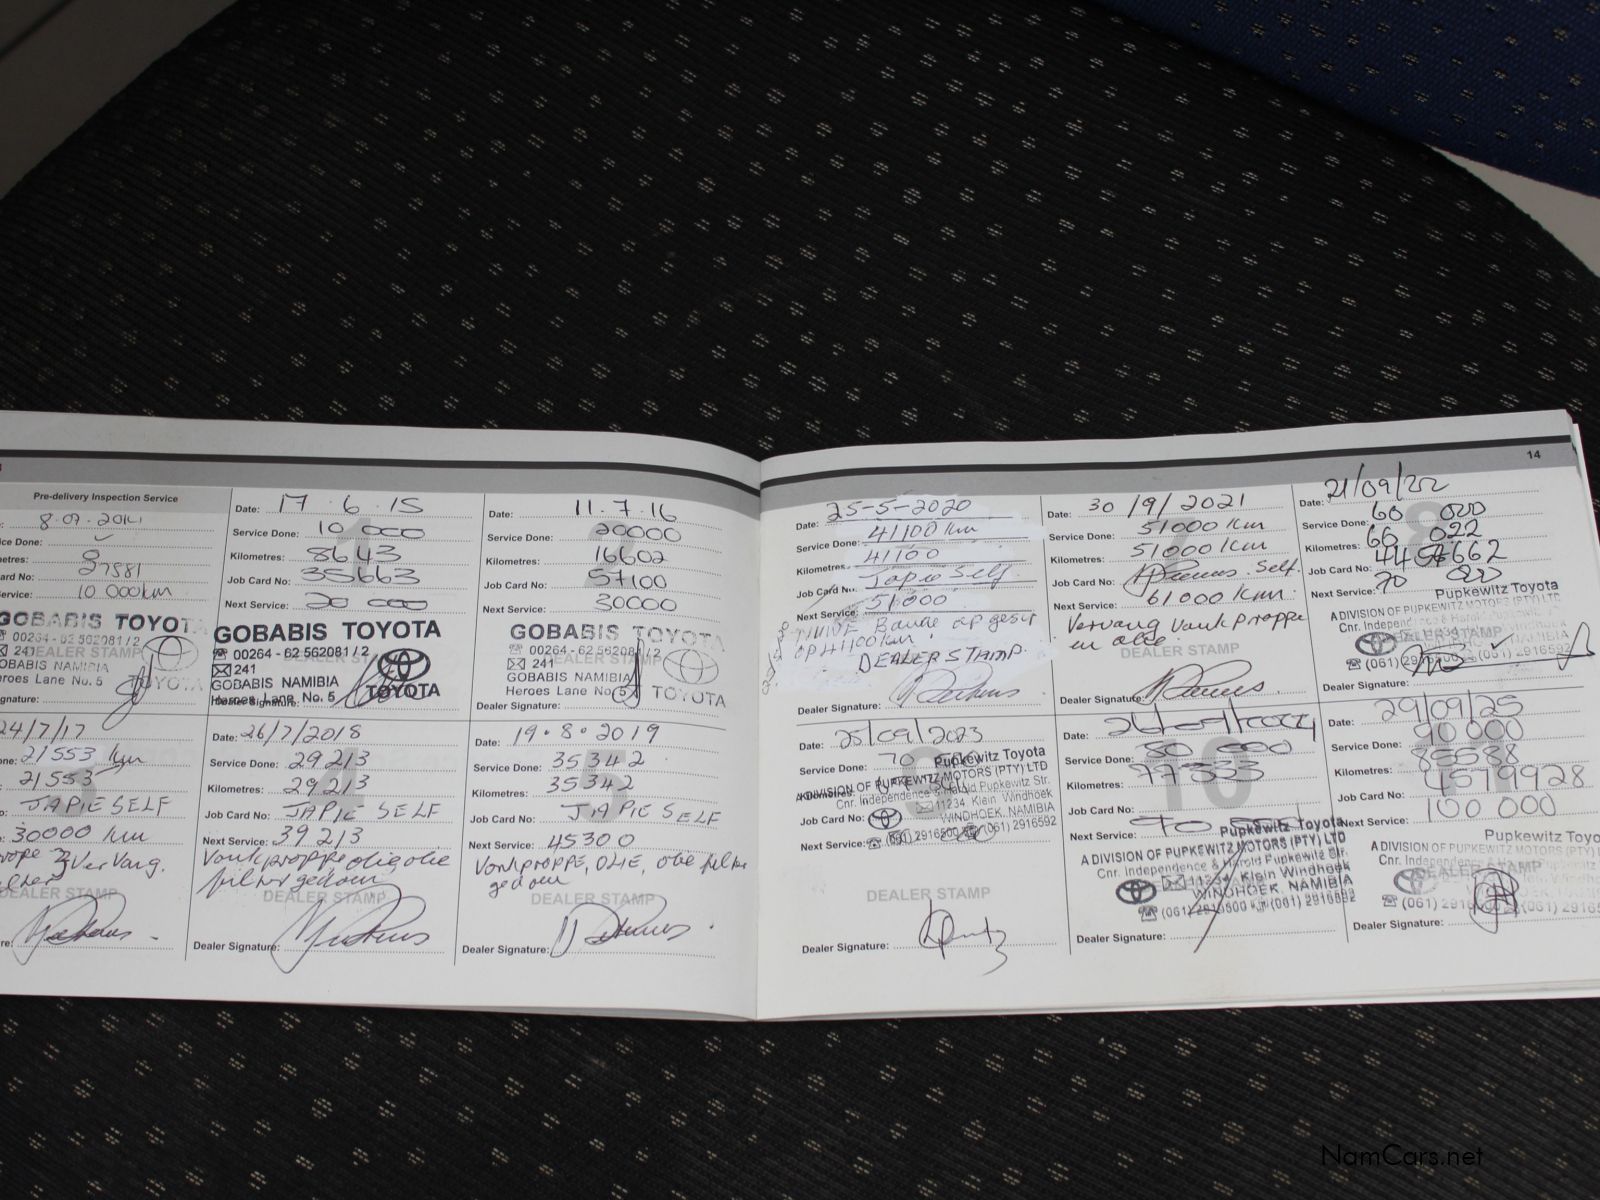 Pre-delivery Inspection Service
8.09.2014
Done:
27581
10 000km
GOBABIS TOYOTA
00264 - 62 562081 / 2
241
DEALER STAMP
GOBABIS NAMIBIA
Heroes Lane No. 5 TOYOTA
Date: 17 . 6 . 15
Service Done: 10 000
Kilometres: 8643
Job Card No: 35663
Next Service: 20 000
GOBABIS TOYOTA
00264 - 62 562081 / 2
241
GOBABIS NAMIBIA
Heroes Lane No. 5 TOYOTA
Dealer Signature:
Date: 11.7.16
Service Done: 20000
Kilometres: 16602
Job Card No: 57100
Next Service: 30000
GOBABIS TOYOTA
00264 - 62 562081 / 2
241 DEALER STAMP
GOBABIS NAMIBIA
Heroes Lane No 5 TOYOTA
Dealer Signature:
24/7/17
21553 km
21553
JAPIE SELF
30000 km
Vervang.
DEALER STAMP
Date: 26/7/2018
Service Done: 29213
Kilometres: 29213
Job Card No: JAPIE SELF
Next Service: 39213
Vonkproppe olie olie
filter gedoen
DEALER STAMP
Dealer Signature:
Date: 19.8.2019
Service Done: 35342
Kilometres: 35342
Job Card No: JAPIE SELF
Next Service: 45300
VONKPROPPE, OLIE, olie filter
gedoen
DEALER STAMP
Dealer Signature:
14
Date: 25-5-2020
Service Done: 41100 km
Kilometres: 41100
Job Card No: Japie Self
Next Service: 51000
Bande op gesit
op 41100km.
DEALER STAMP
Dealer Signature:
Date: 30/9/2021
Service Done: 51000 km
Kilometres: 51000 km
Job Card No: Self
Next Service: 61000 km
Vervang Vonkproppe
en olie
DEALER STAMP
Dealer Signature:
21/09/22
Service Done: 60 000
Kilometres: 60 022
Job Card No: 4457662
Next Service: 70 000
Pupkewitz Toyota
A DIVISION OF PUPKEWITZ MOTORS (PTY) LTD
(061) 2916592
Dealer Signature:
Date: 25/09/2023
Service Done: 70 000
Pupkewitz Toyota
A DIVISION OF PUPKEWITZ MOTORS (PTY) LTD
Kilometres:
Cnr. Independence & Harold Pupkewitz Str.
Job Card No: 11234 Klein Windhoek
WINDHOEK, NAMIBIA
Next Service: (061) 2916500 (061) 2916592
DEALER STAMP
Dealer Signature:
Date: 26/09/2024
Service Done: 80 000
Kilometres: 77333
Job Card No:
Next Service: 90 000
Pupkewitz Toyota
A DIVISION OF PUPKEWITZ MOTORS (PTY) LTD
Cnr. Independence & Harold Pupkewitz Str.
11234 Klein Windhoek
WINDHOEK, NAMIBIA
(061) 2916500 (061) 2916592
Dealer Signature:
Date: 29/09/25
Service Done: 90 000
Kilometres: 85588
Job Card No: 4579928
Next Service: 100 000
Pupkewitz Toyota
A DIVISION OF PUPKEWITZ MOTORS (PTY)
DEALER STAMP
(061)
Dealer Signature:
NamCars.net